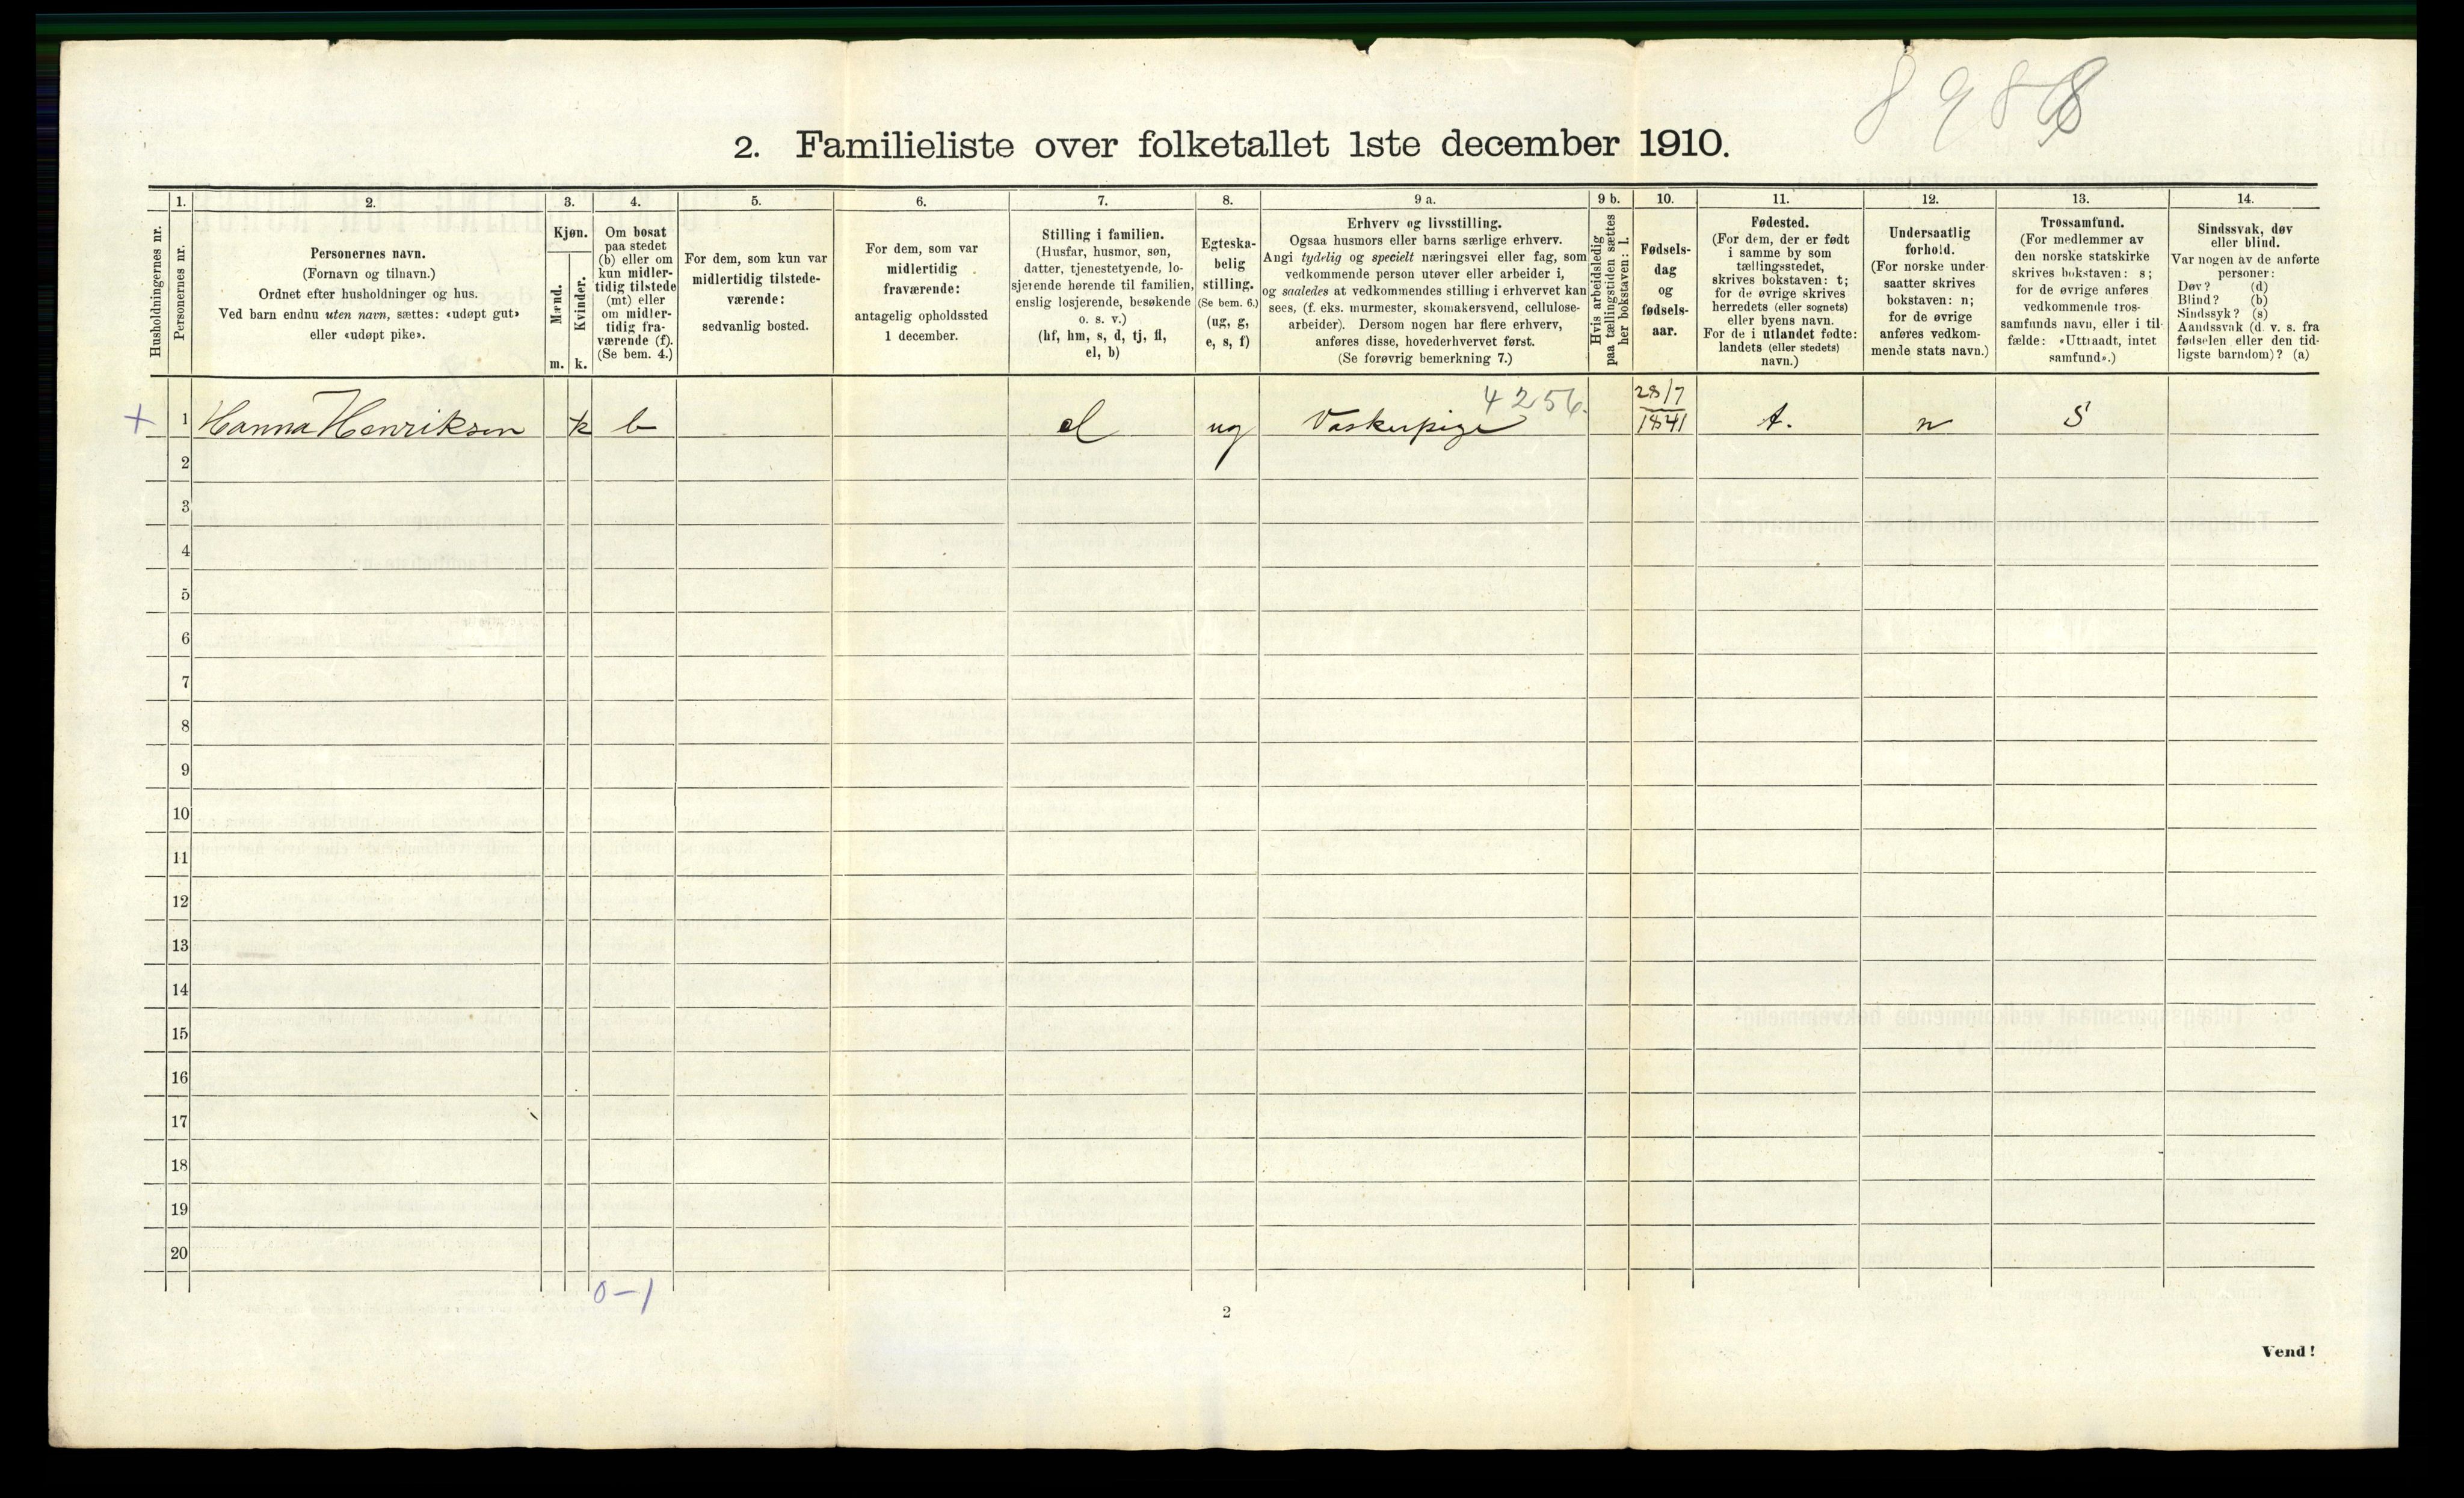 2. Familieliste over folketallet 1ste december 1910.
1.
2.
3.
4.
5.
6.
7.
8.
9 a.
9 b.
10.
11.
12.
13.
14.
Husholdningernes nr.
Personernes nr.
Personernes navn.
(Fornavn og tilnavn.)
Ordnet efter husholdninger og hus.
Ved barn endnu uten navn, sættes: «udøpt gut»
eller «udøpt pike».
Kjøn.
Mænd.
Kvinder.
m.
k.
Om bosat
paa stedet
(b) eller om
kun midler-
tidig tilstede
(mt) eller
om midler-
tidig fra-
værende (f).
(Se bem. 4.)
For dem, som kun var
midlertidig tilstede-
værende:
sedvanlig bosted.
For dem, som var
midlertidig
fraværende:
antagelig opholdssted
1 december.
Stilling i familien.
(Husfar, husmor, søn,
datter, tjenestetyende, lo-
sjerende hørende til familien,
enslig losjerende, besøkende
o. s. v.)
(hf, hm, s, d, tj, fl,
el, b)
Egteska-
belig
stilling.
(Se bem. 6.)
(ug, g,
e, s, f)
Erhverv og livsstilling.
Ogsaa husmors eller barns særlige erhverv.
Angi tydelig og specielt næringsvei eller fag, som
vedkommende person utøver eller arbeider i,
og saaledes at vedkommendes stilling i erhvervet kan
sees, (f. eks. murmester, skomakersvend, cellulose-
arbeider). Dersom nogen har flere erhverv,
anføres disse, hovederhvervet først.
(Se forøvrig bemerkning 7.)
Hvis arbeidsledig
paa tællingstiden sættes
her bokstaven: l.
Fødsels-
dag
og
fødsels-
aar.
Fødested.
(For dem, der er født
i samme by som
tællingsstedet,
skrives bokstaven: t;
for de øvrige skrives
herredets (eller sognets)
eller byens navn.
For de i utlandet fødte:
landets (eller stedets)
navn.)
Undersaatlig
forhold.
(For norske under-
saatter skrives
bokstaven: n;
for de øvrige
anføres vedkom-
mende stats navn.)
Trossamfund.
(For medlemmer av
den norske statskirke
skrives bokstaven: s;
for de øvrige anføres
vedkommende tros-
samfunds navn, eller i til-
fælde: «Uttraadt, intet
samfund».)
Sindssvak, døv
eller blind.
Var nogen av de anførte
personer:
Døv? (d)
Blind? (b)
Sindssyk? (s)
Aandssvak (d. v. s. fra
fødselen eller den tid-
ligste barndom)? (a)
+ 1 Hanna Henriksen k b el ug Vaskerpige 4256. 28/7 1841 t. n S
2
3
4
5
6
7
8
9
10
11
12
13
14
15
16
17
18
19
20
0–1
2
Vend!